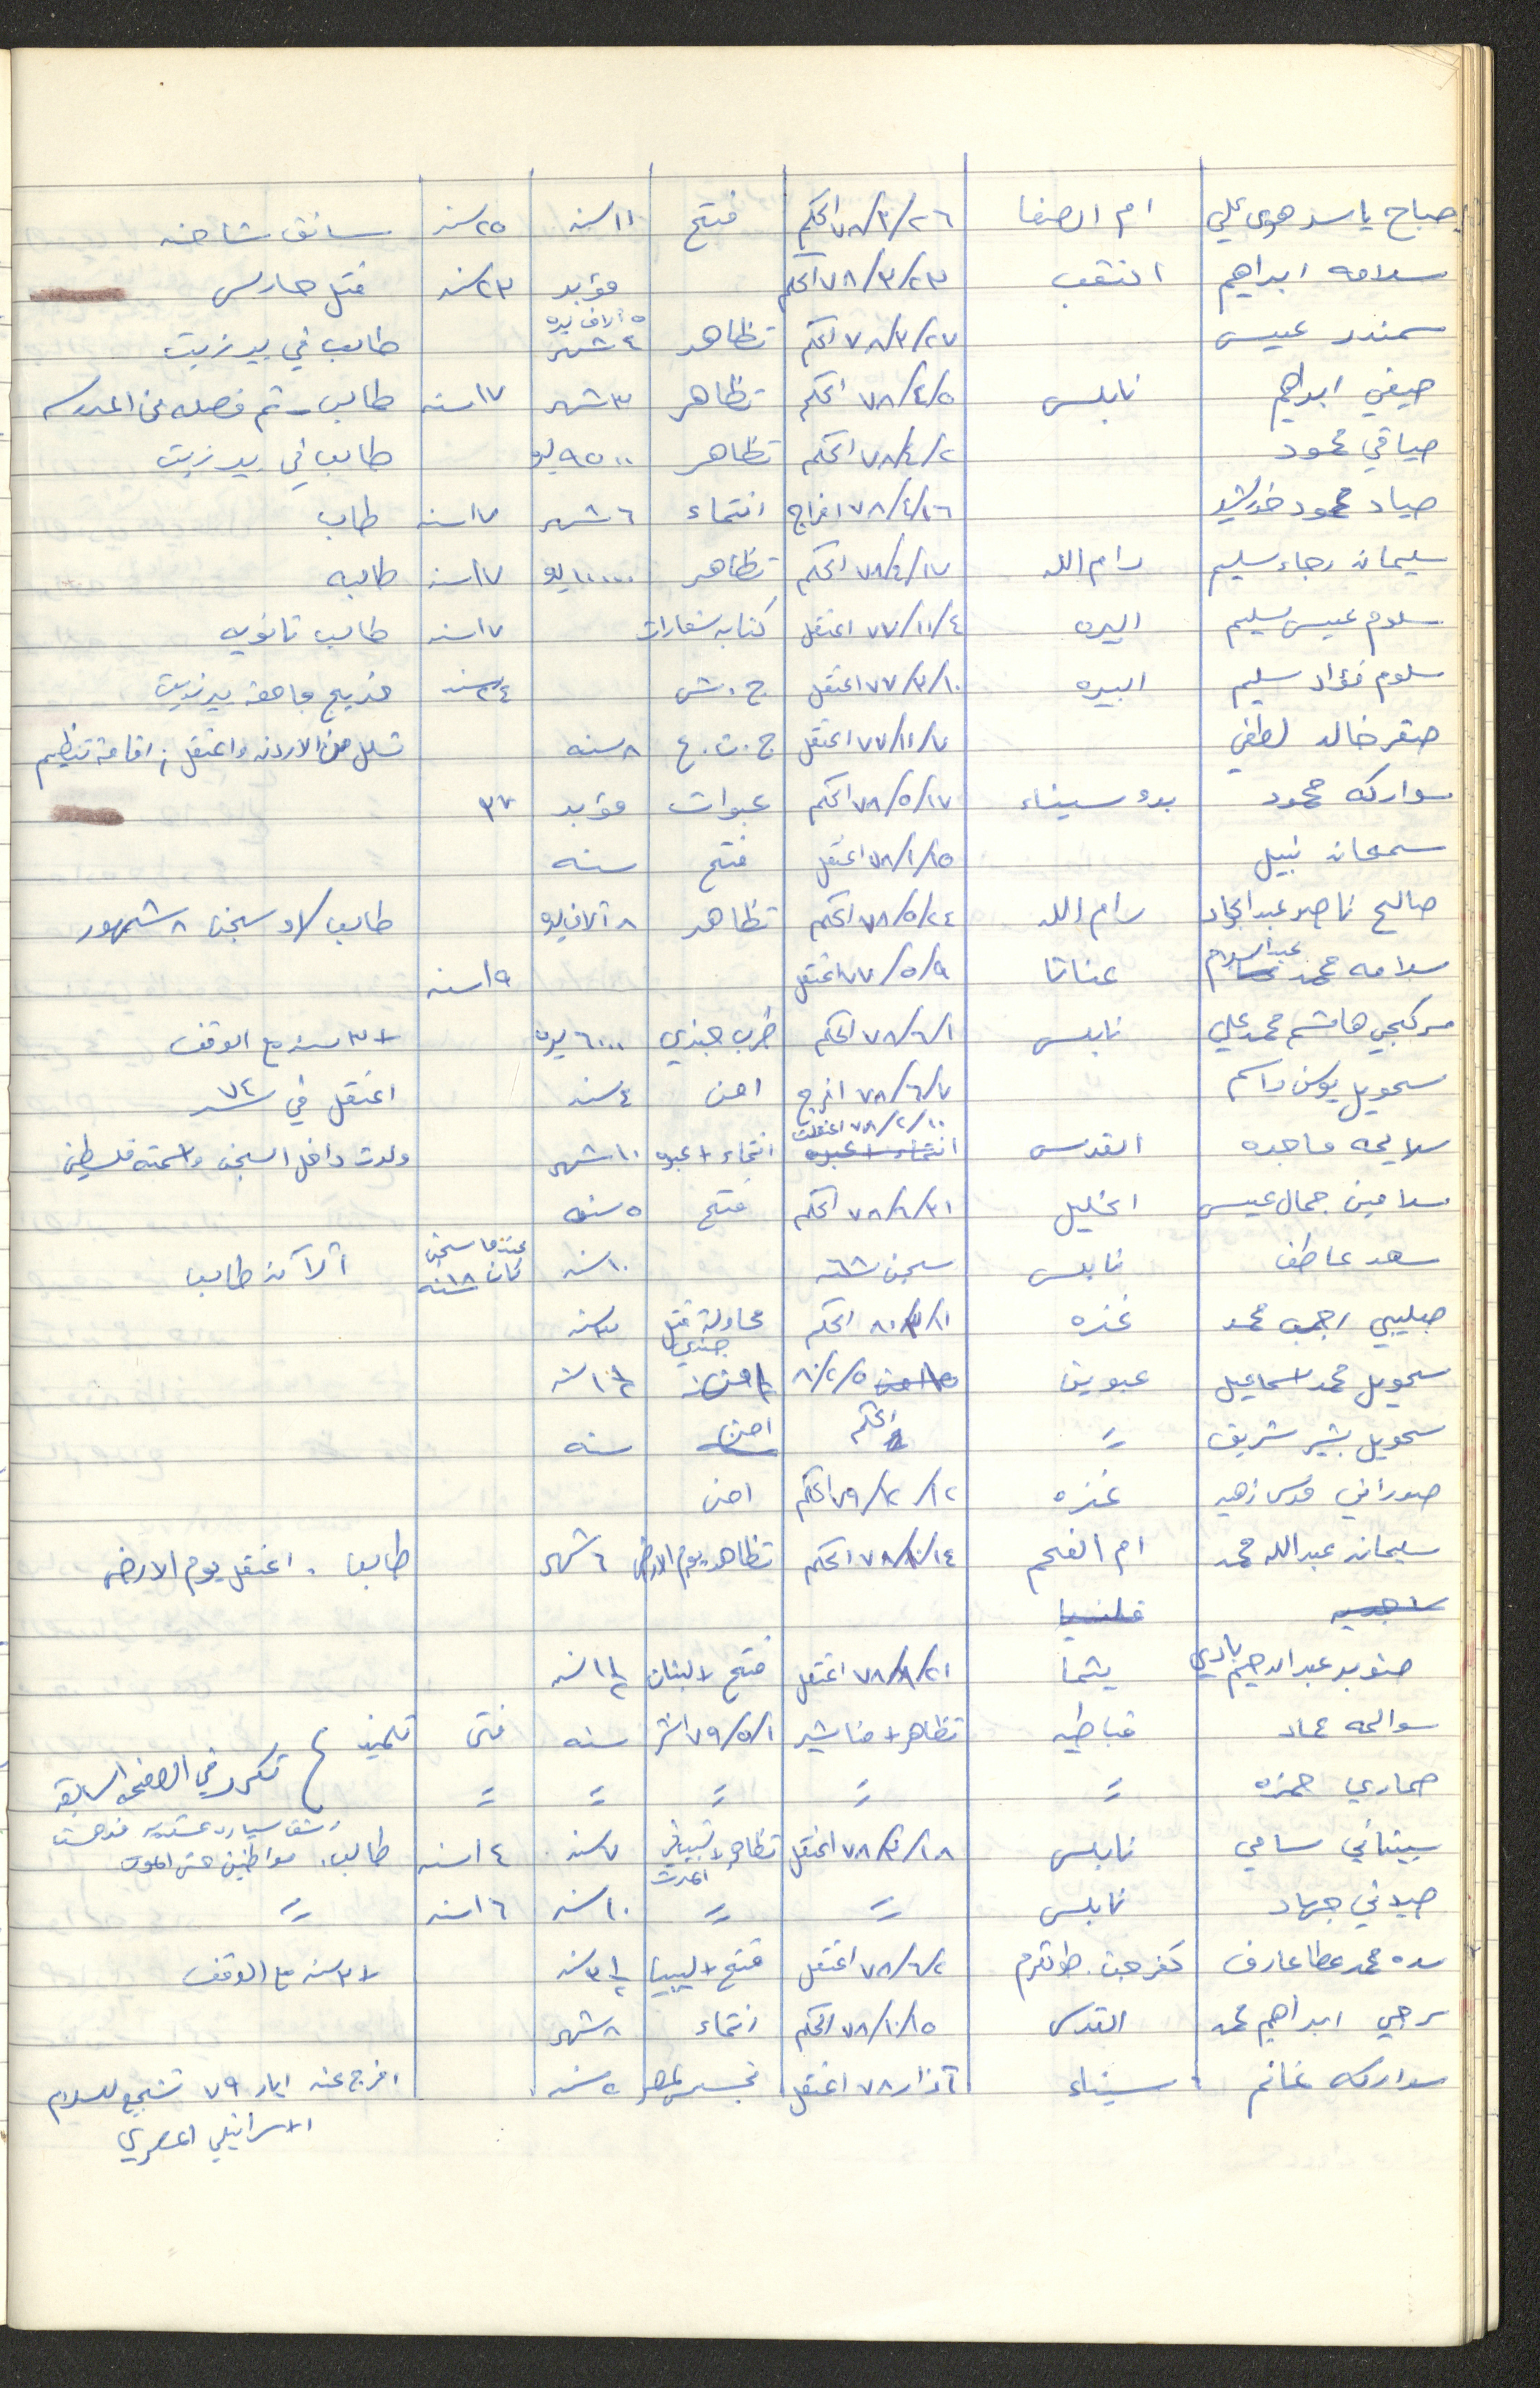 صباح ياسر هوى علي ام الصفا ٧٨/٣/٢٦ الحكم فتح ١١ سنه ٢٥ سنه سائق شاحنه
سلامه ابراهيم النقب ٧٨/٣/٢٣ الحكم مؤبد ٢٣ سنه قتل حارس
سمندر عيسى ٧٨/٣/٢٧ الحكم تظاهر ٤ شهر ٥ آلاف ليره طالب في بير زيت
صيفي ابراهيم نابلس ٧٨/٤/٥ الحكم تظاهر ٣ شهر ١٧ سنه طالب - تم فصله من المدرسه
صيافي محمود ٧٨/٤/٢ الحكم تظاهر ٩٥٠٠ ليره طالب في بير زيت
صياد محمود خورشيد ٧٨/٤/٢٦ افراج انتماء ٦ شهر ١٧ سنه طالب
سليمان رجاء سليم رام الله ٧٨/٤/١٧ الحكم تظاهر ١٠٠٠٠ ليره ١٧ سنه طالبه
سلوم عيسى سليم البيره ٧٧/١١/٤ اعتقل كتابه شعارات ١٧ سنه طالب ثانويه
سلوم فؤاد سليم البيره ٧٧/٣/١٠ اعتقل ج . ش ٢٤ سنه خريج جامعه بير زيت
صقر خالد لطفي ٧٧/١١/٧ اعتقل ج . ت . ع ٨ سنه تسلل من الاردن واعتقل ; اقامة تنظيم
سواركه محمود بدو سيناء ٧٨/٥/١٧ الحكم عبوات مؤبد ٣٧
سمعان نبيل ٧٨/١/١٥ اعتقل فتح سنه
صالح ناصر عبد الجواد رام الله ٧٨/٥/٢٤ الحكم تظاهر ٨ آلاف ليره طالب / او سجن ٨ شهور
سلامه محمد عبد السلام عناتا ٧٧/٥/٩ اعتقل ١٩ سنه
سركجي هاشم محمد علي نابلس ٧٨/٦/١ الحكم ضرب جندي ٦٠٠٠ ليره + ٣ سنه مع الوقف
سحويل يوسف راسم ٧٨/٦/٧ افرج امن ٤ سنه اعتقل في سنه ٧٤
سلايمه ماجده القدس ٧٨/٢/١٠ اعتقلت انتماء + عبوه ١٠ شهر ولدت داخل السجن واسمته فلسطين
سلامين جمال عيسى الخليل ٧٨/٦/٢١ الحكم فتح ٥ سنه
سعد عاطف نابلس سجن سنه ٦٨ ١٠ سنه عندما سجن كان ١٨ سنه آلآن طالب
صليبي رجب محمد غزه ٨٠/٣/١ الحكم محاولة قتل جندي ٣ سنه
سحويل محمد اسماعيل عبوين ٨٠/٢/٥ ١٠ ١/٢ سنه
سحويل بشير شريف = الحكم امن سنه
صوراني زهير غزه ٧٩/٢/١٢ الحكم امن
سليمان عبد الله محمد ام الفحم ٧٨/٨/١٤ الحكم تظاهر يوم الارض ٦ شهر طالب . اعتقل يوم الارض
صنوبر عبد الرحيم بادي يتما ٧٨/٨/٢١ اعتقل فتح + لبنان ١ ١/٢ سنه
سوالمه عماد قباطيه تظاهر + مناشير ٧٩/٥/١ سنه فتى تلميذ
صماري حمزه = = = = = تكرر في الصفحه السابقه
سيتاني سامي نابلس ٧٨/٣/١٨ اعتقل تظاهر + تسبب في الموت ٧ سنه ١٤ سنه طالب. مواطنين حتى الموت
صيلاني جهاد نابلس = = ١٠ سنه ١٦ سنه =
سده محمد عطا عارف كفر جت . طولكرم ٧٨/٦/٢ اعتقل فتح + ليبيا ٣ ١/٢ سنه + ٣ سنه مع الوقف
سرحي ابراهيم محمد القدس ٧٨/١٠/١٥ الحكم انتماء ٨ شهر
سواركه غانم سيناء آذار ٧٨ اعتقل تجسس لمصر ٢ سنه افرج عنه ايار ٧٩ تشجيع للسلام
الاسرائيلي المصري